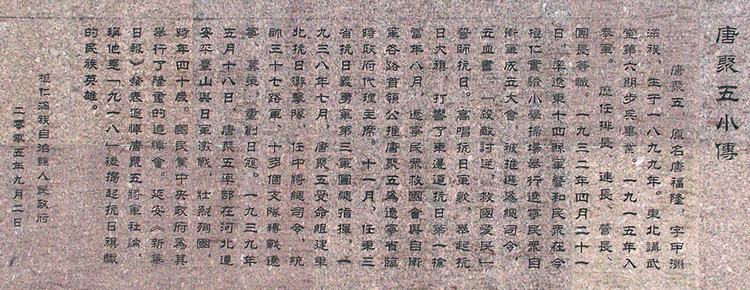 唐聚五小傳
唐聚五 原名唐福隆，字甲洲
滿族，生于一八九九年。東北講武
堂第六期步兵畢業，一九一五年入
奉軍。歷任排長、連長、營長、
團長等職。一九三二年四月二十一
日，率遼東十四縣軍警和民衆在今
桓仁實驗小學操場舉行遼寧民衆自
衛軍成立大會，被推選爲總司令，
立血書，「殺敵討逆，救國愛民」
誓師抗日。高唱抗日軍歌，舉起抗
日大旗，打響了東邊道抗日第一槍
當年八月，遼寧民衆救國會與自衛
軍各路首領公推唐聚五爲遼寧省臨
時政府代理主席。十一月，任東三
省抗日義勇軍第三軍團總指揮。一
九三八年七月，唐聚五受命組建東
北抗日游擊隊，任中將總司令，統
帥三十七路軍，十多個支隊轉戰遼
寧、冀東，重創日寇。一九三九年
五月十八日，唐聚五率部在河北遷
安平臺山與日軍激戰，壯烈殉國
時年四十歲。國民黨中央政府爲其
舉行了隆重的追悼會。延安《新華
日報》發表追悼唐聚五將軍社論，
稱他是「九一八」後揭起抗日旗幟
的民族英雄。
桓仁滿族自治縣人民政府
二零零五年九月二日